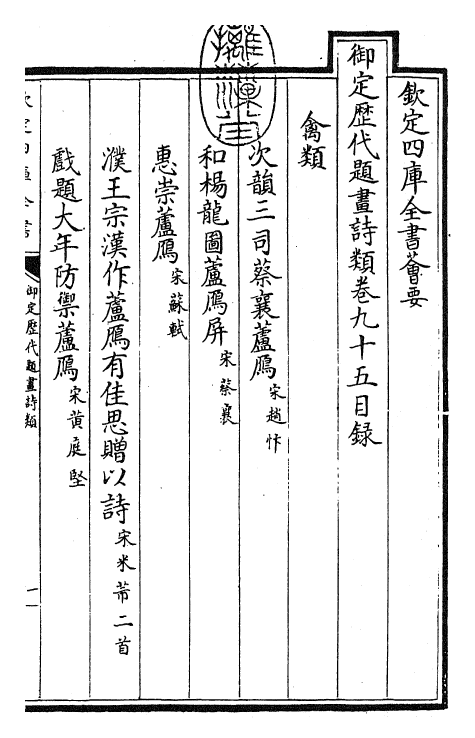 欽定四庫全書薈要
御定歴代題畫詩類卷九十五目録
禽類
次韻三司蔡襄蘆鴈 宋趙抃
和楊龍圖蘆鴈屏 宋蔡襄
惠崇蘆鴈 宋蘇軾
濮王宗漢作蘆鴈有佳思贈以詩 宋米芾二首
戲題大年防禦蘆鴈 宋黄庭堅
御定歴代題畫詩類
一